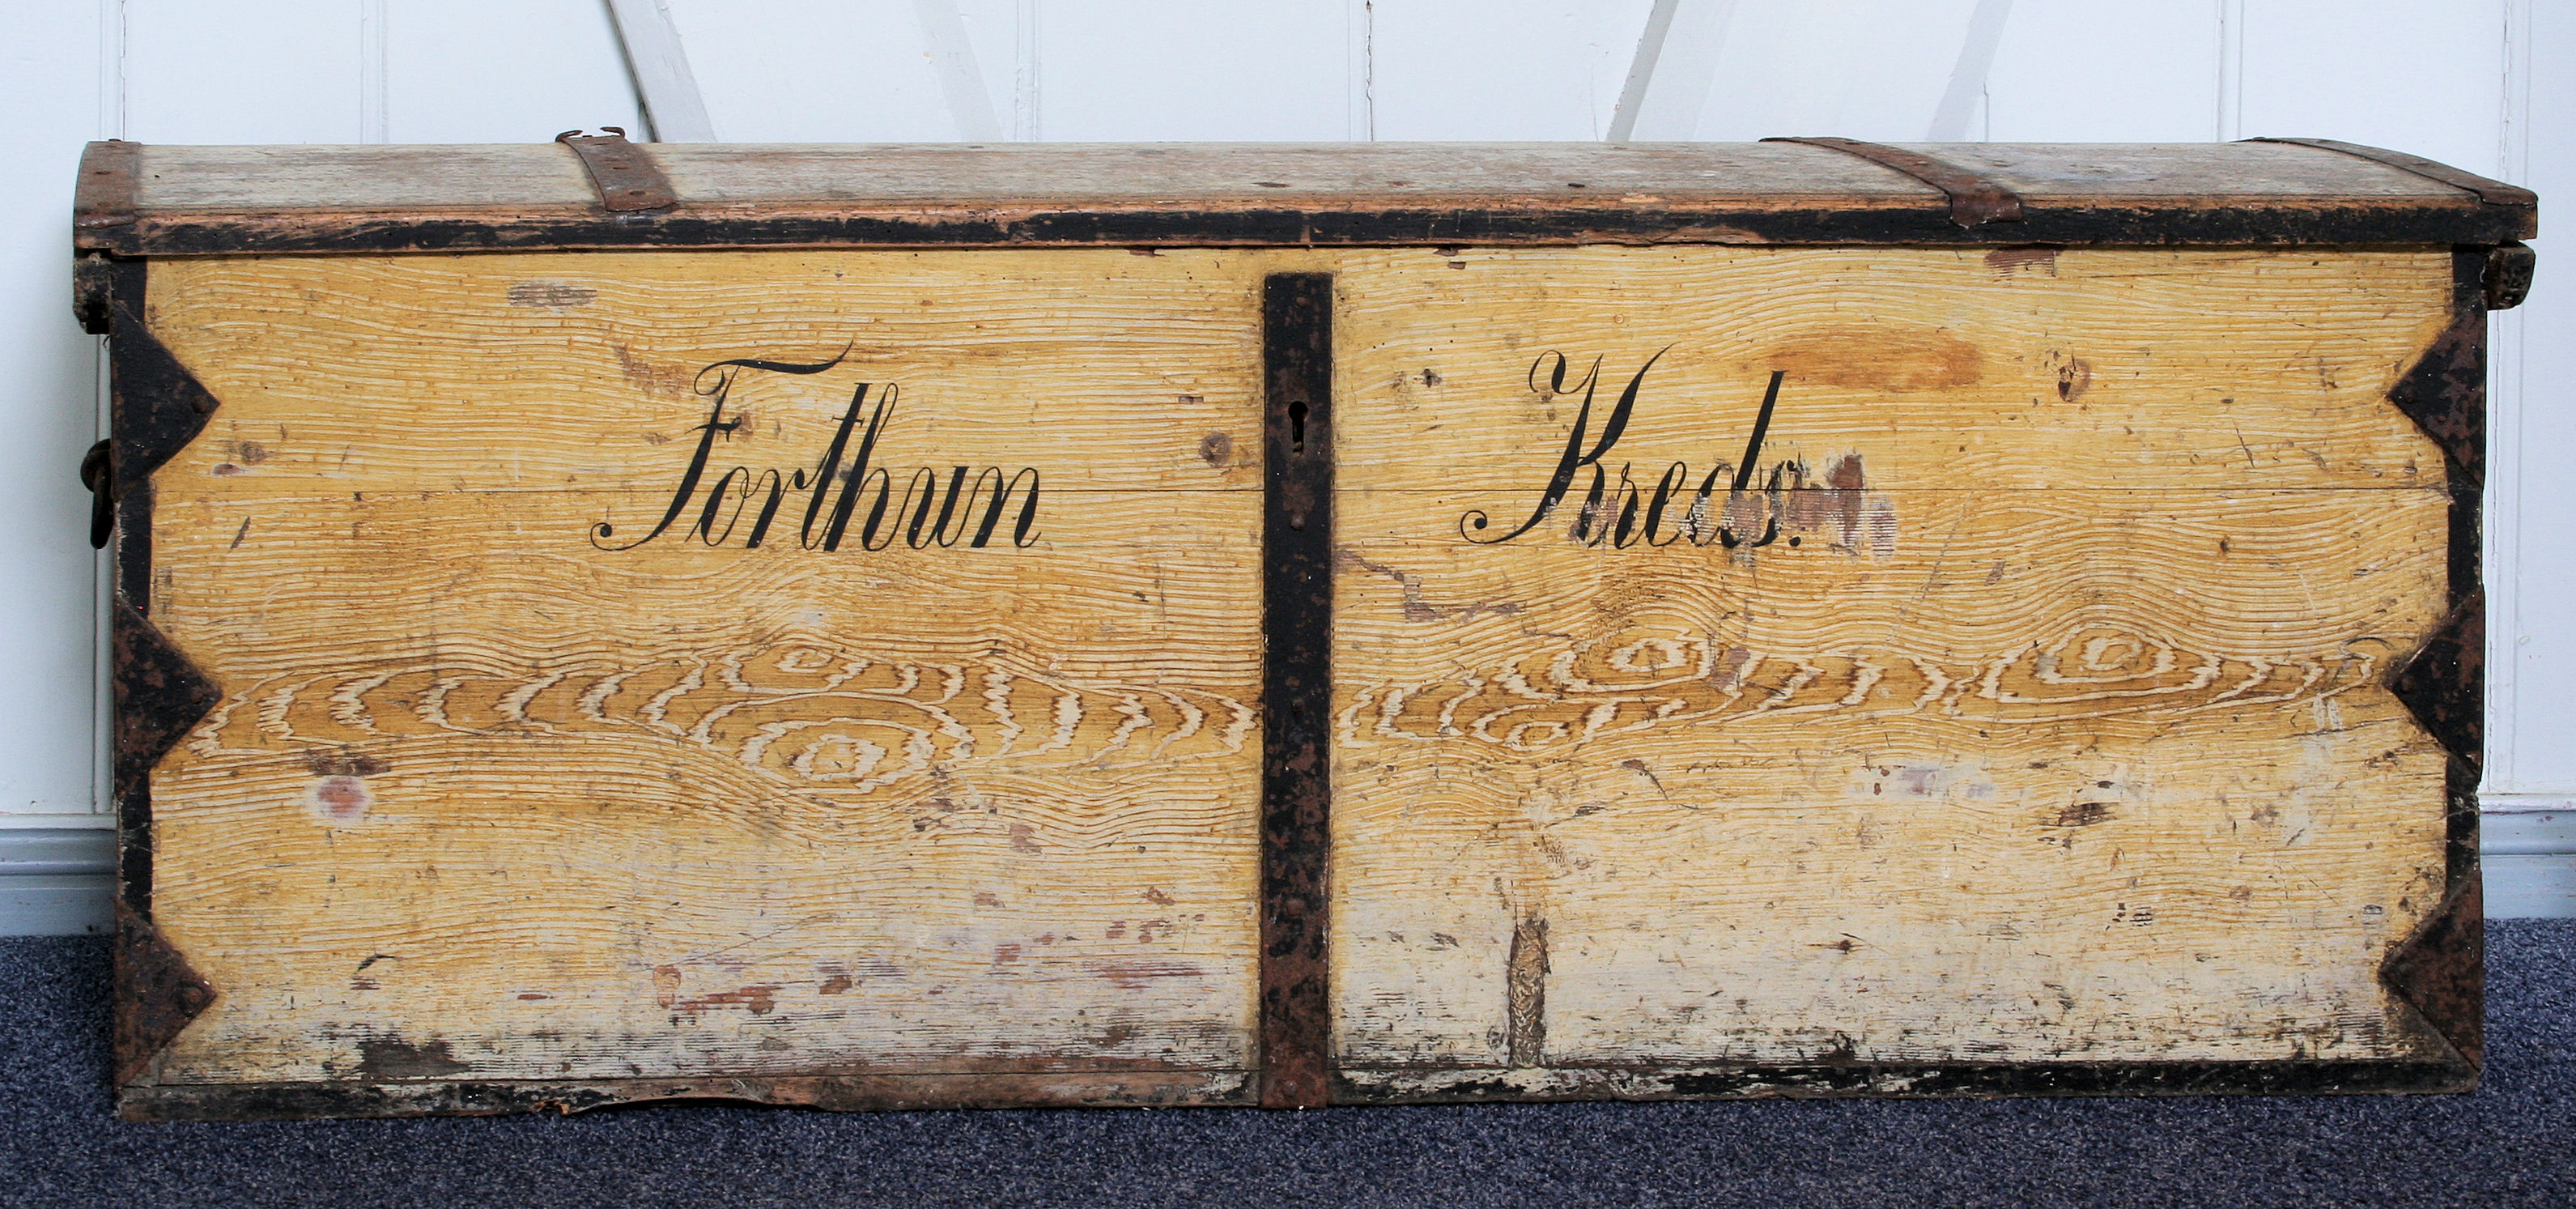 Forthun Kreds.